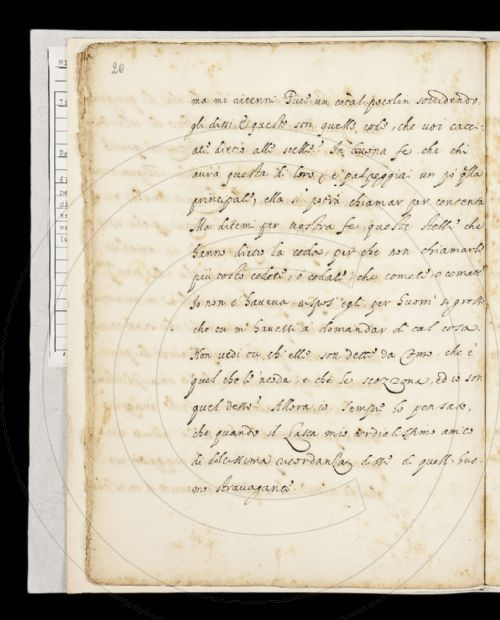 20
ma mi ritenni. Pure un cotal pocolin sorridendo,
gli dissi. E queste son quelle code, che voi cacci-
ate dietro alle stelle? In buona fe che chi
avrà questa di loro, e palpeggia un po qlla
principale, ella si potrà chiamar per contenta
Ma ditemi per vostra fe, queste stelle che
hanno dietro la coda, per che non chiamarle
più tosto codete, ò codate, che comete, o comate
Io non t'haveva, rispos' egli, per huom' si grosso
che tu m'havessi à domandar di tal cosa.
Non vedi tu ch'elle son dette da Como, che è
quel che le ncoda, e che le scozzona, ed io son
quel desso. Allora io. Sempre ho pensato,
che quando il Lasca mio cordialissimo amico
di dolcissima ricordanza disse di quell huo-
mo stravagante.